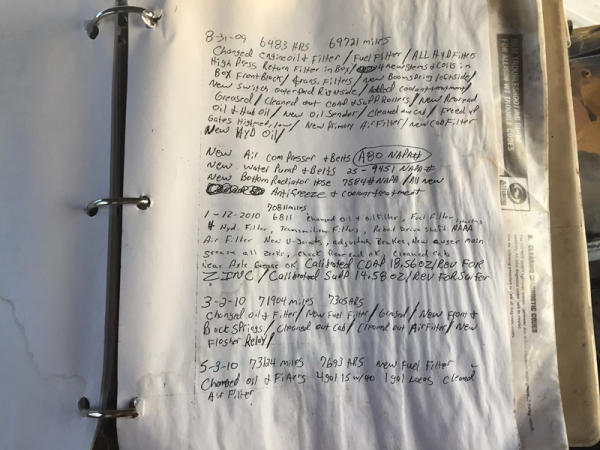 8-31-09 6483 HRS 69721 miles
Changed engine oil & Filter / Fuel Filter / ALL HYD Filters
High Press Return Filter in Box / 4 new stems & Coils in
Box Front Block / trans. Filters / new Boom spring left side /
New Switch outer pad Right side / Added coolant treatment /
Greased / Cleaned out CDAP & SUPP Rollers / New Rear end
Oil & Hub Oil / New Oil Sender / Cleaned out Cab / Freed up
Gates High, med, low / New Primary Air Filter / New Cab Filter
New HYD Oil /
New Air compressor & Belts A80 NAPA#
New Water Pump & Belts 25-9451 NAPA#
New Bottom Radiator Hose 7584# NAPA / All new
Antifreeze & coolant treatment
70811 miles
1-12-2010 6811 Changed Oil & Oil Filter, Fuel Filter,
# Hyd. Filter, Transmission Filters, Rebuilt Drive Shaft NAPA
Air Filter New U-Joints, adjusted Brakes, New auger main
grease all zerks, check Rear end OK Cleaned Cab,
rear Axle Grease OK Calibrated CDAP 18.56 OZ/REV FOR
ZINC / Calibrated SUPP 14.58 OZ/REV FOR Sulfer
3-2-10 71904 miles 7305 HRS
Changed oil & Filter / New Fuel Filter / Greased / New Front &
Back Springs / Cleaned out Cab / Cleaned out Air Filter / New
Flasher Relay /
5-3-10 73134 miles 7693 HRS new Fuel Filter
Changed oil & Filters 4 gal 15w/40 1 gal Lucas Cleaned
Air Filter